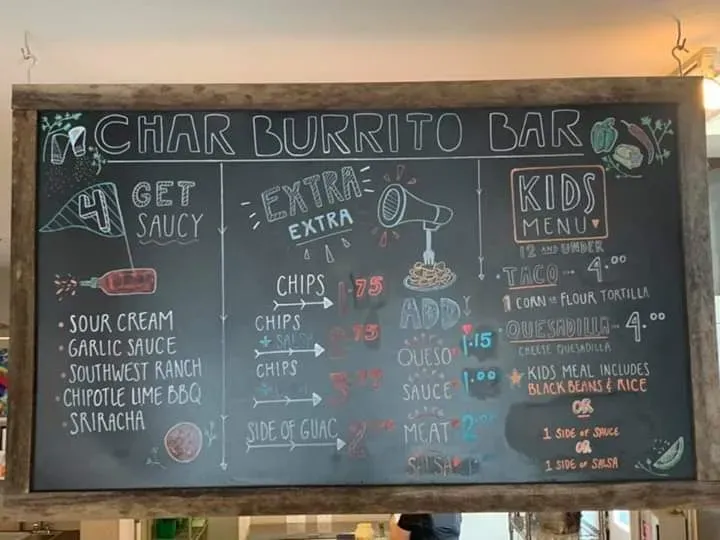 CHAR BURRITO BAR
4 GET
SAUCY
• SOUR CREAM
• GARLIC SAUCE
• SOUTHWEST RANCH
• CHIPOTLE LIME BBQ
• SRIRACHA
EXTRA
EXTRA
CHIPS 1.75
CHIPS
+ SALSA .75
CHIPS
+
SIDE OF GUAC
ADD
QUESO 1.15
SAUCE 1.00
MEAT
SALSA
KIDS
MENU
12 AND UNDER
• TACO 4.00
1 CORN OR FLOUR TORTILLA
• QUESADILLA 4.00
CHEESE QUESADILLA
KIDS MEAL INCLUDES
BLACK BEANS & RICE
OR
1 SIDE OF SAUCE
OR
1 SIDE OF SALSA